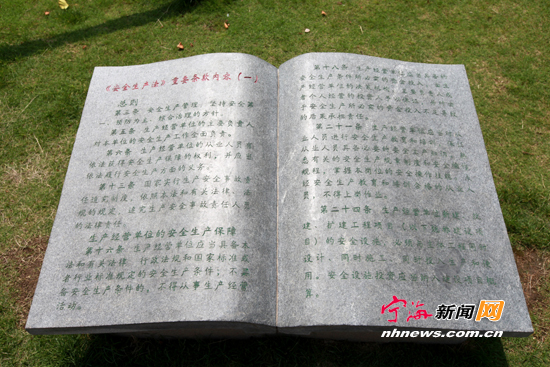 《安全生产法》重要条款内容（一）
总则
第三条 安全生产管理，坚持安全第
一、预防为主、综合治理的方针。
第五条 生产经营单位的主要负责人
对本单位的安全生产工作全面负责。
第六条 生产经营单位的从业人员有
依法获得安全生产保障的权利，并应当
依法履行安全生产方面的义务。
第十三条 国家实行生产安全事故责
任追究制度，依照本法和有关法律、法
规的规定，追究生产安全事故责任人员
的法律责任。
生产经营单位的安全生产保障
第十六条 生产经营单位应当具备本
法和有关法律、行政法规和国家标准或
者行业标准规定的安全生产条件；不具
备安全生产条件的，不得从事生产经营
活动。
第十八条 生产经营单位应当具备的
安全生产条件所必需的资金投入，由生
产经营单位的决策机构、
个人经营的投资人予以保证，并对由
于安全生产所必需的资金投入不足导致
的后果承担责任。
第二十一条 生产经营单位应当对
从业人员进行安全生产教育和培训，保证
从业人员具备必要的安全生产知识，熟
悉有关的安全生产规章制度和安全操作
规程，掌握本岗位的安全操作技能。未
经安全生产教育和培训合格的从业人
员，不得上岗作业。
第二十四条 生产经营单位新建、改
建、扩建工程项目（以下统称建设项
目）的安全设施，必须与主体工程同时
设计、同时施工、同时投入生产和使
用。安全设施投资应当纳入建设项目概
算。
宁海新闻网
nhnews.com.cn